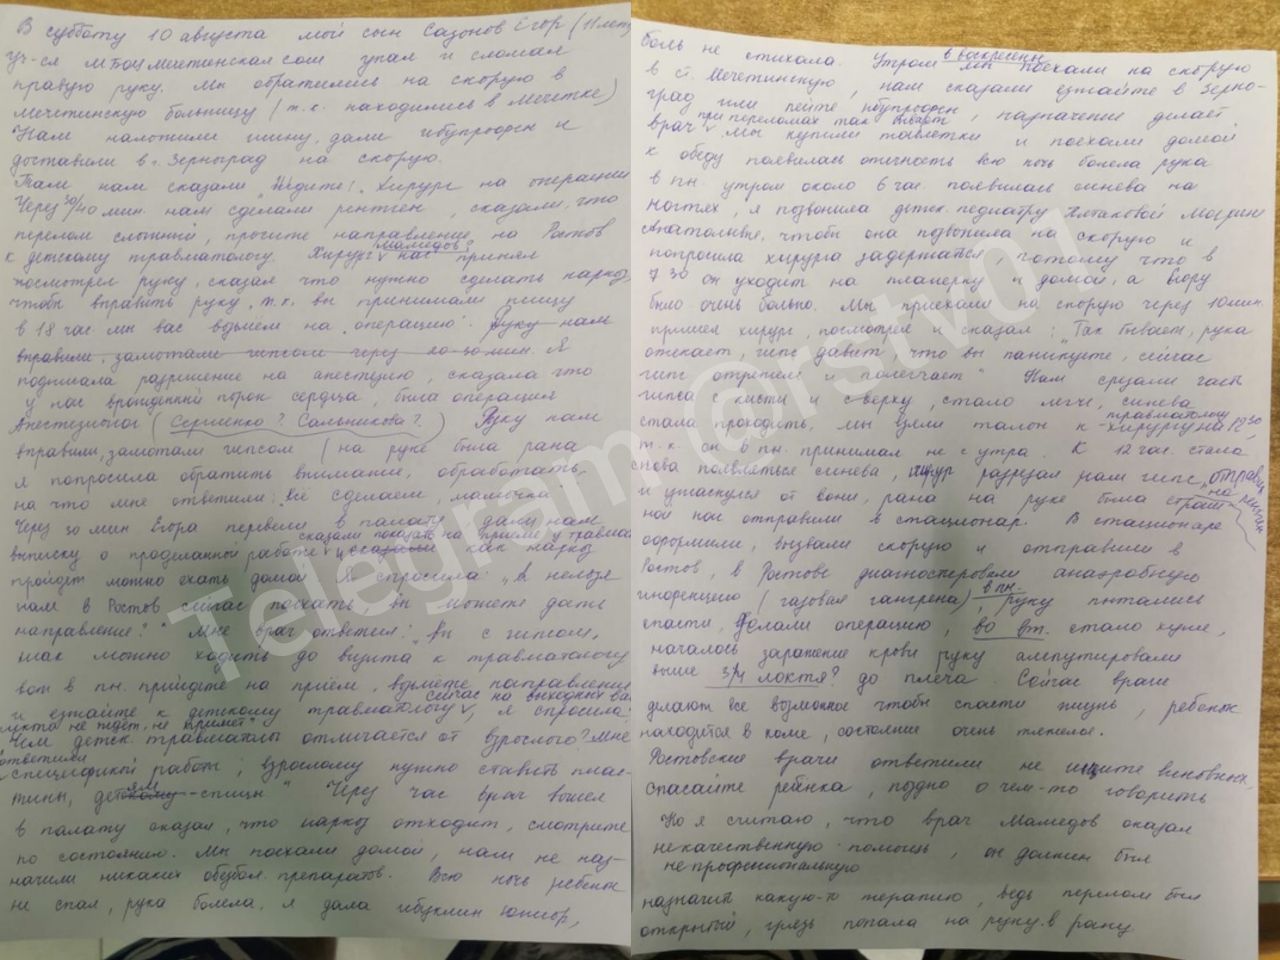 В субботу 10 августа мой сын Сазонов Егор (11 лет)
уч-ся МБОУ Мечетинская сош упал и сломал
правую руку. Мы обратились на скорую в
мечетинскую больницу (т.к. находились в Мечетке)
Нам наложили шину, дали ибупрофен и
доставили в г. Зерноград на скорую.
Там нам сказали "Ждите!" Хирург на операции
Через 30/40 мин. нам сделали рентген, сказали, что
перелом сложный, просите направление на Ростов
к детскому травматологу. Хирург Мамедов? нас принял
посмотрел руку, сказал что нужно сделать наркоз,
чтобы вправить руку, т.к. вы принимали пищу
в 18 час. мы вас возьмём на "операцию". Руку нам
вправили, замотали гипсом через 20-30 мин. Я
подписала разрешение на анестезию, сказала что
у нас врожденный порок сердца, была операция
Анестезиолог (Сергиенко? Сальникова?) Руку нам
вправили, замотали гипсом (на руке была рана
я попросила обратить внимание, обработать,
на что мне ответили: "всё сделаем, мамочка")
Через 30 мин Егора перевели в палату, дали нам
выписку о проделанной работе, сказали показать на приеме у травмат.
как наркоз
пройдет можно ехать домой. Я спросила: "А нельзя
нам в Ростов сейчас поехать, вы можете дать
направление?" Мне врач ответил: "Вы с гипсом,
так можно ходить до визита к травматологу
вот в пн. прийдете на приём, возьмете направление
и езжайте к детскому травматологу, сейчас на выходных вас
никто не ждет, не примет", я спросила:
Чем детск. травматолог отличается от взрослого? Мне
ответили
"спецификой работы, взрослому нужно ставить плас-
тины, детям - спицы" Через час врач вошел
в палату сказал, что наркоз отходит, смотрите
по состоянию. Мы поехали домой, нам не наз-
начили никаких обезбол. препаратов. Всю ночь ребенок
не спал, рука болела, я дала ибуклин Юниор,
боль не стихала. Утром в воскресенье мы поехали на скорую
в ст. Мечетинскую, нам сказали езжайте в Зерно-
град или пейте ибупрофен, назначение делает
врач, при переломах так бывает, мы купили таблетки и поехали домой
к обеду появилась отечность всю ночь болела рука
в пн. утром около 6 час. появилась синева на
ногтях, я позвонила детск. педиатру Марине
Анатольевне, чтобы она позвонила на скорую и
попросила хирурга задержаться, потому что в
7 30 он уходит на планерку и домой, а Егору
было очень больно. Мы приехали на скорую через 10 мин.
пришел хирург, посмотрел и сказал: "Так бывает, рука
отекает, гипс давит, что вы паникуете, сейчас
гипс отрежем и полегчает" Нам срезали часть
гипса с кисти и сверху, стало легче, синева
стала проходить, мы взяли талон к травматологу
хирургу на 12 30,
т.к. он в пн. принимал не с утра. К 12 час. стала
снова появляться синева, хирург разрезал нам гипс,
и ужаснулся от вони, рана на руке была страш-
ной нас отправили в стационар. В стационаре
отправили на рентген
оформили, вызвали скорую и отправили в
Ростов, в Ростове диагностировали анаэробную
инфекцию (газовая гангрена) в пн., руку пытались
спасти, делали операцию, во вт. стало хуже,
началось заражение крови руку ампутировали
выше 3/4 локтя? до плеча. Сейчас врачи
делают все возможное чтобы спасти жизнь, ребенок
находится в коме, состояние очень тяжелое.
Ростовские врачи ответили не ищите виновных,
спасайте ребёнка, поздно о чем-то говорить
Но я считаю, что врач Мамедов оказал
некачественную помощь, он должен был
непрофессиональную
назначит какую-то терапию, ведь перелом был
открытый, грязь попала на руку в рану
Telegram @rstv01